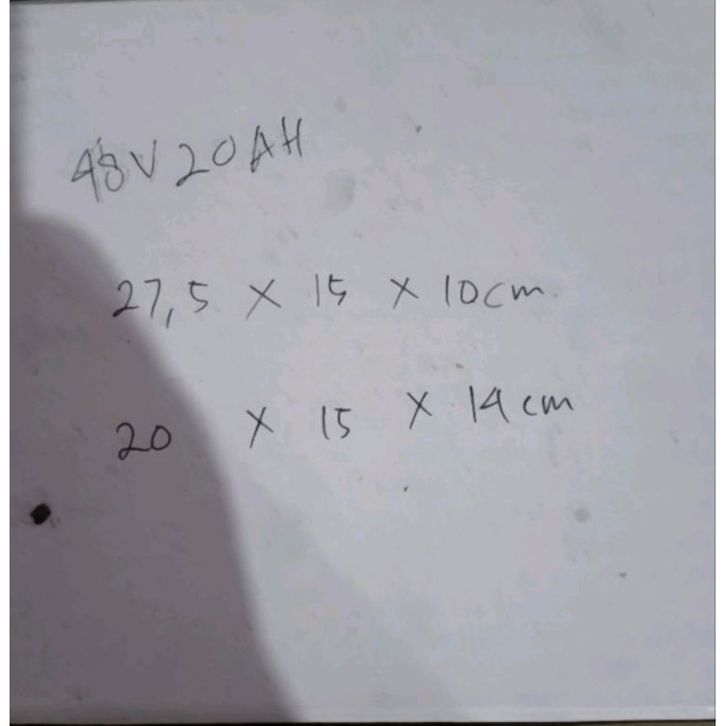 48V 20AH
27,5 X 15 X 10cm
20 X 15 X 14cm